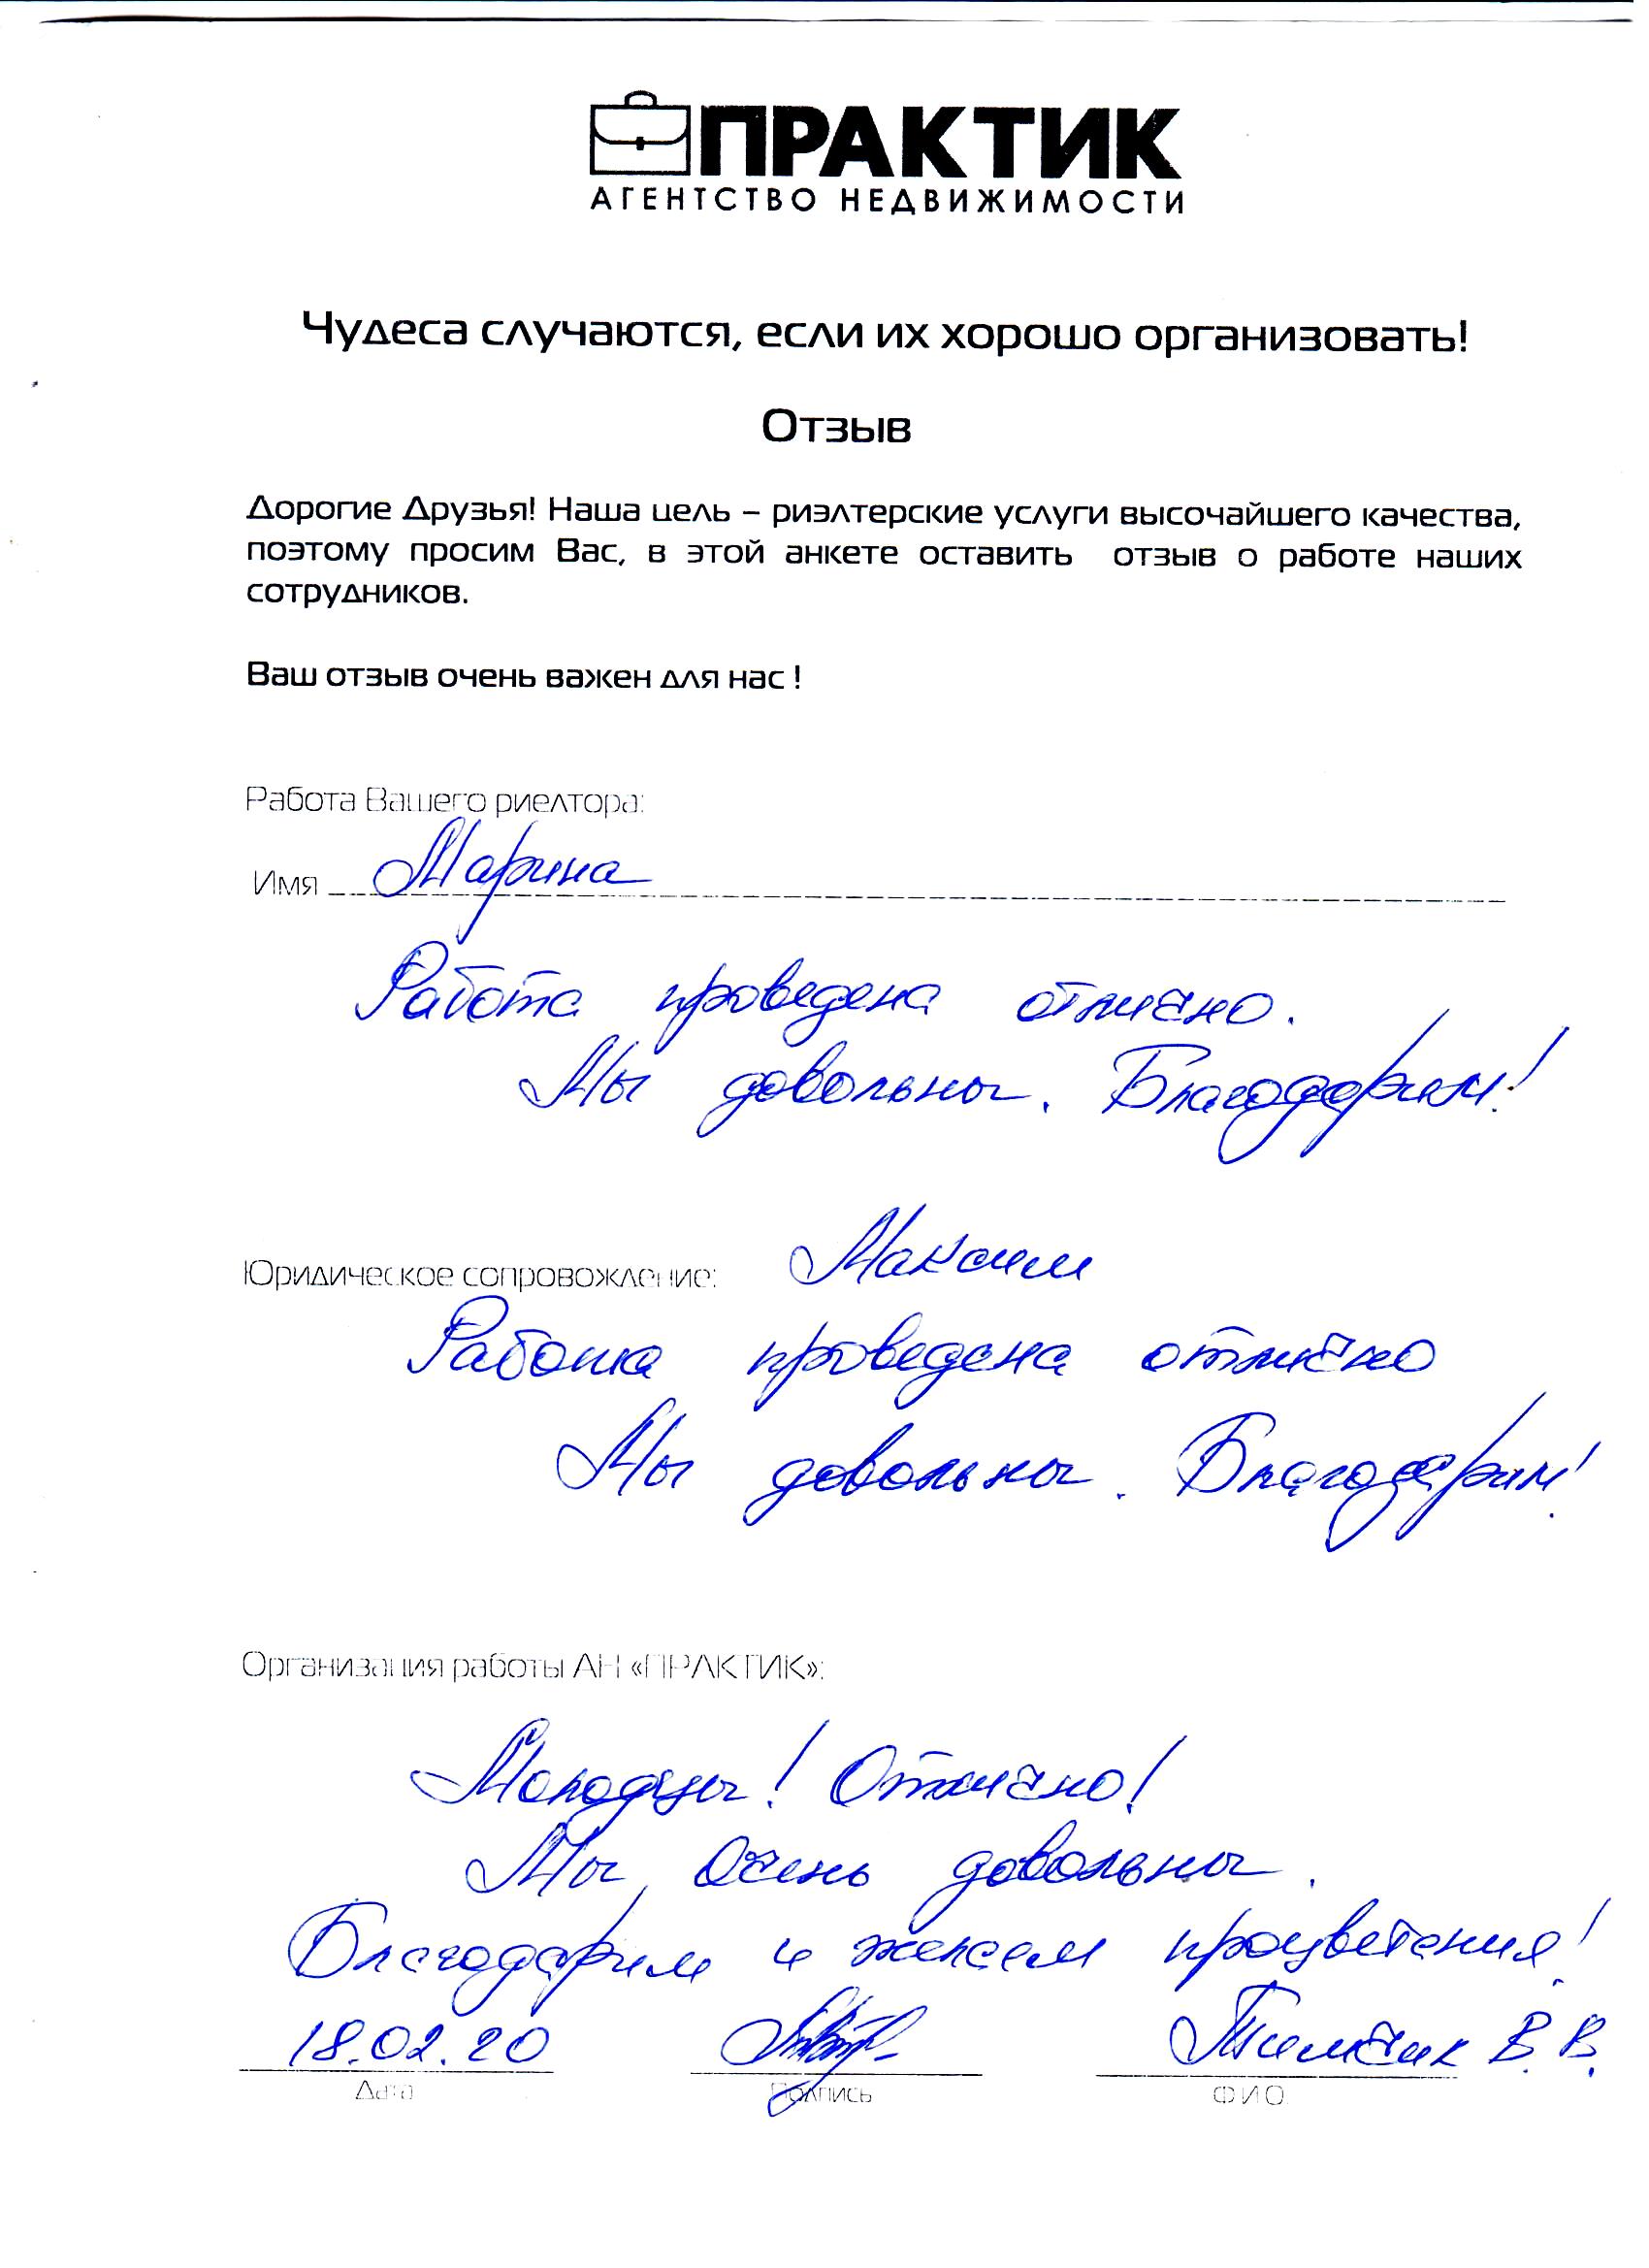 ПРАКТИК
АГЕНТСТВО НЕДВИЖИМОСТИ
Чудеса случаются, если их хорошо организовать!
Отзыв
Дорогие Друзья! Наша цель – риэлтерские услуги высочайшего качества,
поэтому просим Вас, в этой анкете оставить отзыв о работе наших
сотрудников.
Ваш отзыв очень важен для нас !
Работа Вашего риелтора:
Имя Марина
Работа проведена отлично.
Мы довольны. Благодарим!
Юридическое сопровождение: Максим
Работа проведена отлично
Мы довольны. Благодарим!
Организация работы АН «ПРАКТИК»:
Молодцы! Отлично!
Мы очень довольны.
Благодарим и желаем процветения!
18.02.20 В. В.
Дата Подпись ФИО